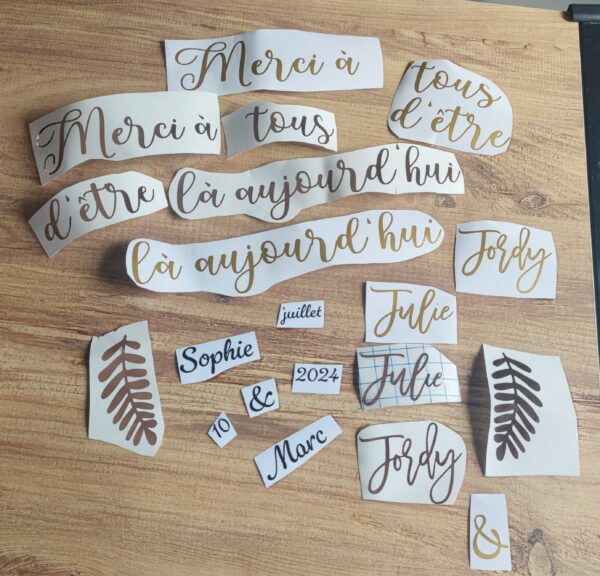 Merci à
tous
d'être
Merci à
tous
d'être
là aujourd'hui
là aujourd'hui
Jordy
juillet
Julie
Sophie
2024
Julie
&
10
Marc
Jordy
&